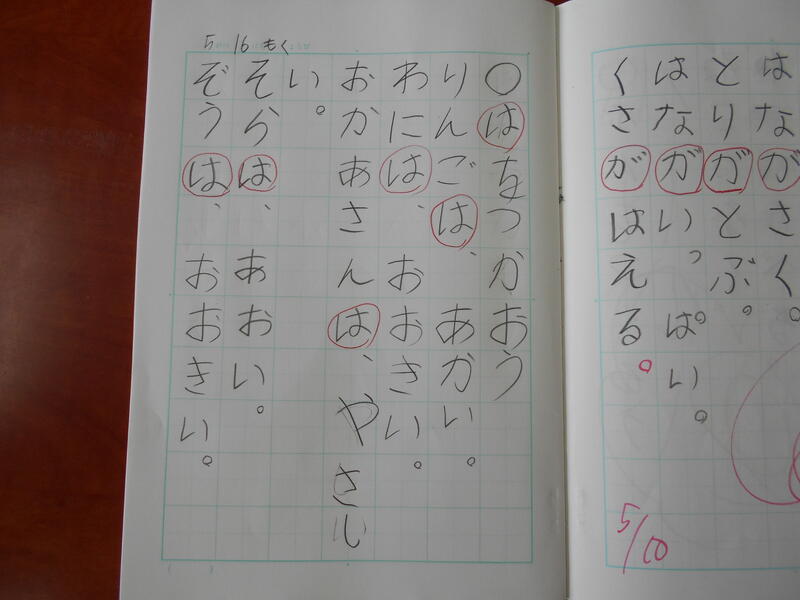 はながさく。
とりがとぶ。
はながいっぱい。
くさがはえる。
5/10
5 16 もく
○はをつかおう
りんごは、あかい。
わには、おおきい。
おかあさんは、やさし
い。
そらは、あおい。
ぞうは、おおきい。